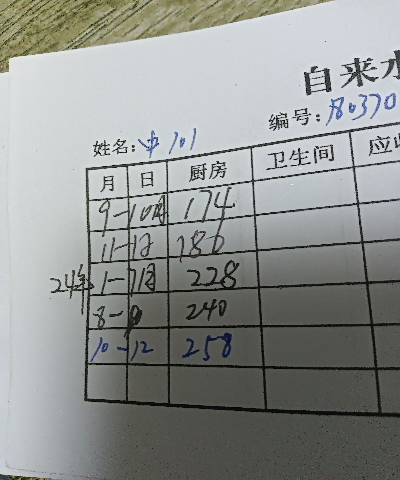 自来水
编号: 80370
姓名: 中101
月 日 厨房 卫生间 应收
9-10月 174
11-12 186
24年 1-7月 228
8-9 240
10-12 258